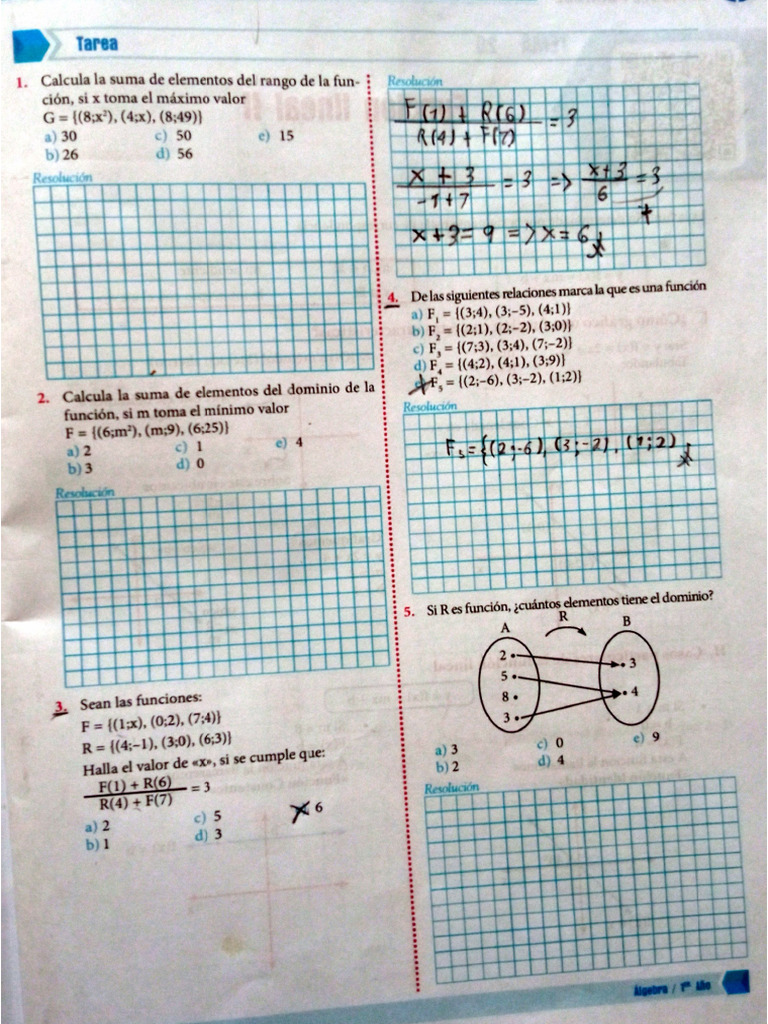 Tarea
1. Calcula la suma de elementos del rango de la fun-
ción, si x toma el máximo valor
G = {(8;x²), (4;x), (8;49)}
a) 30 c) 50 e) 15
b) 26 d) 56
Resolución
2. Calcula la suma de elementos del dominio de la
función, si m toma el mínimo valor
F = {(6;m²), (m;9), (6;25)}
a) 2 c) 1 e) 4
b) 3 d) 0
Resolución
3. Sean las funciones:
F = {(1;x), (0;2), (7;4)}
R = {(4;–1), (3;0), (6;3)}
Halla el valor de «x», si se cumple que:
F(1) + R(6)
= 3
R(4) + F(7)
a) 2 c) 5 6
b) 1 d) 3
Resolución
F(1) + R(6)
= 3
R(4) + F(7)
x + 3 = 3 => x+3 = 3
-1+7 6
x+3=9 => x=6
4. De las siguientes relaciones marca la que es una función
a) F₁ = {(3;4), (3;–5), (4;1)}
b) F₂ = {(2;1), (2;–2), (3;0)}
c) F₃ = {(7;3), (3;4), (7;–2)}
d) F₄ = {(4;2), (4;1), (3;9)}
F₅ = {(2;–6), (3;–2), (1;2)}
Resolución
F₅={(2;-6), (3;-2), (1;2)
5. Si R es función, ¿cuántos elementos tiene el dominio?
R
A B
2
3
5
4
8
3
a) 3 c) 0 e) 9
b) 2 d) 4
Resolución
Álgebra / 1er Año